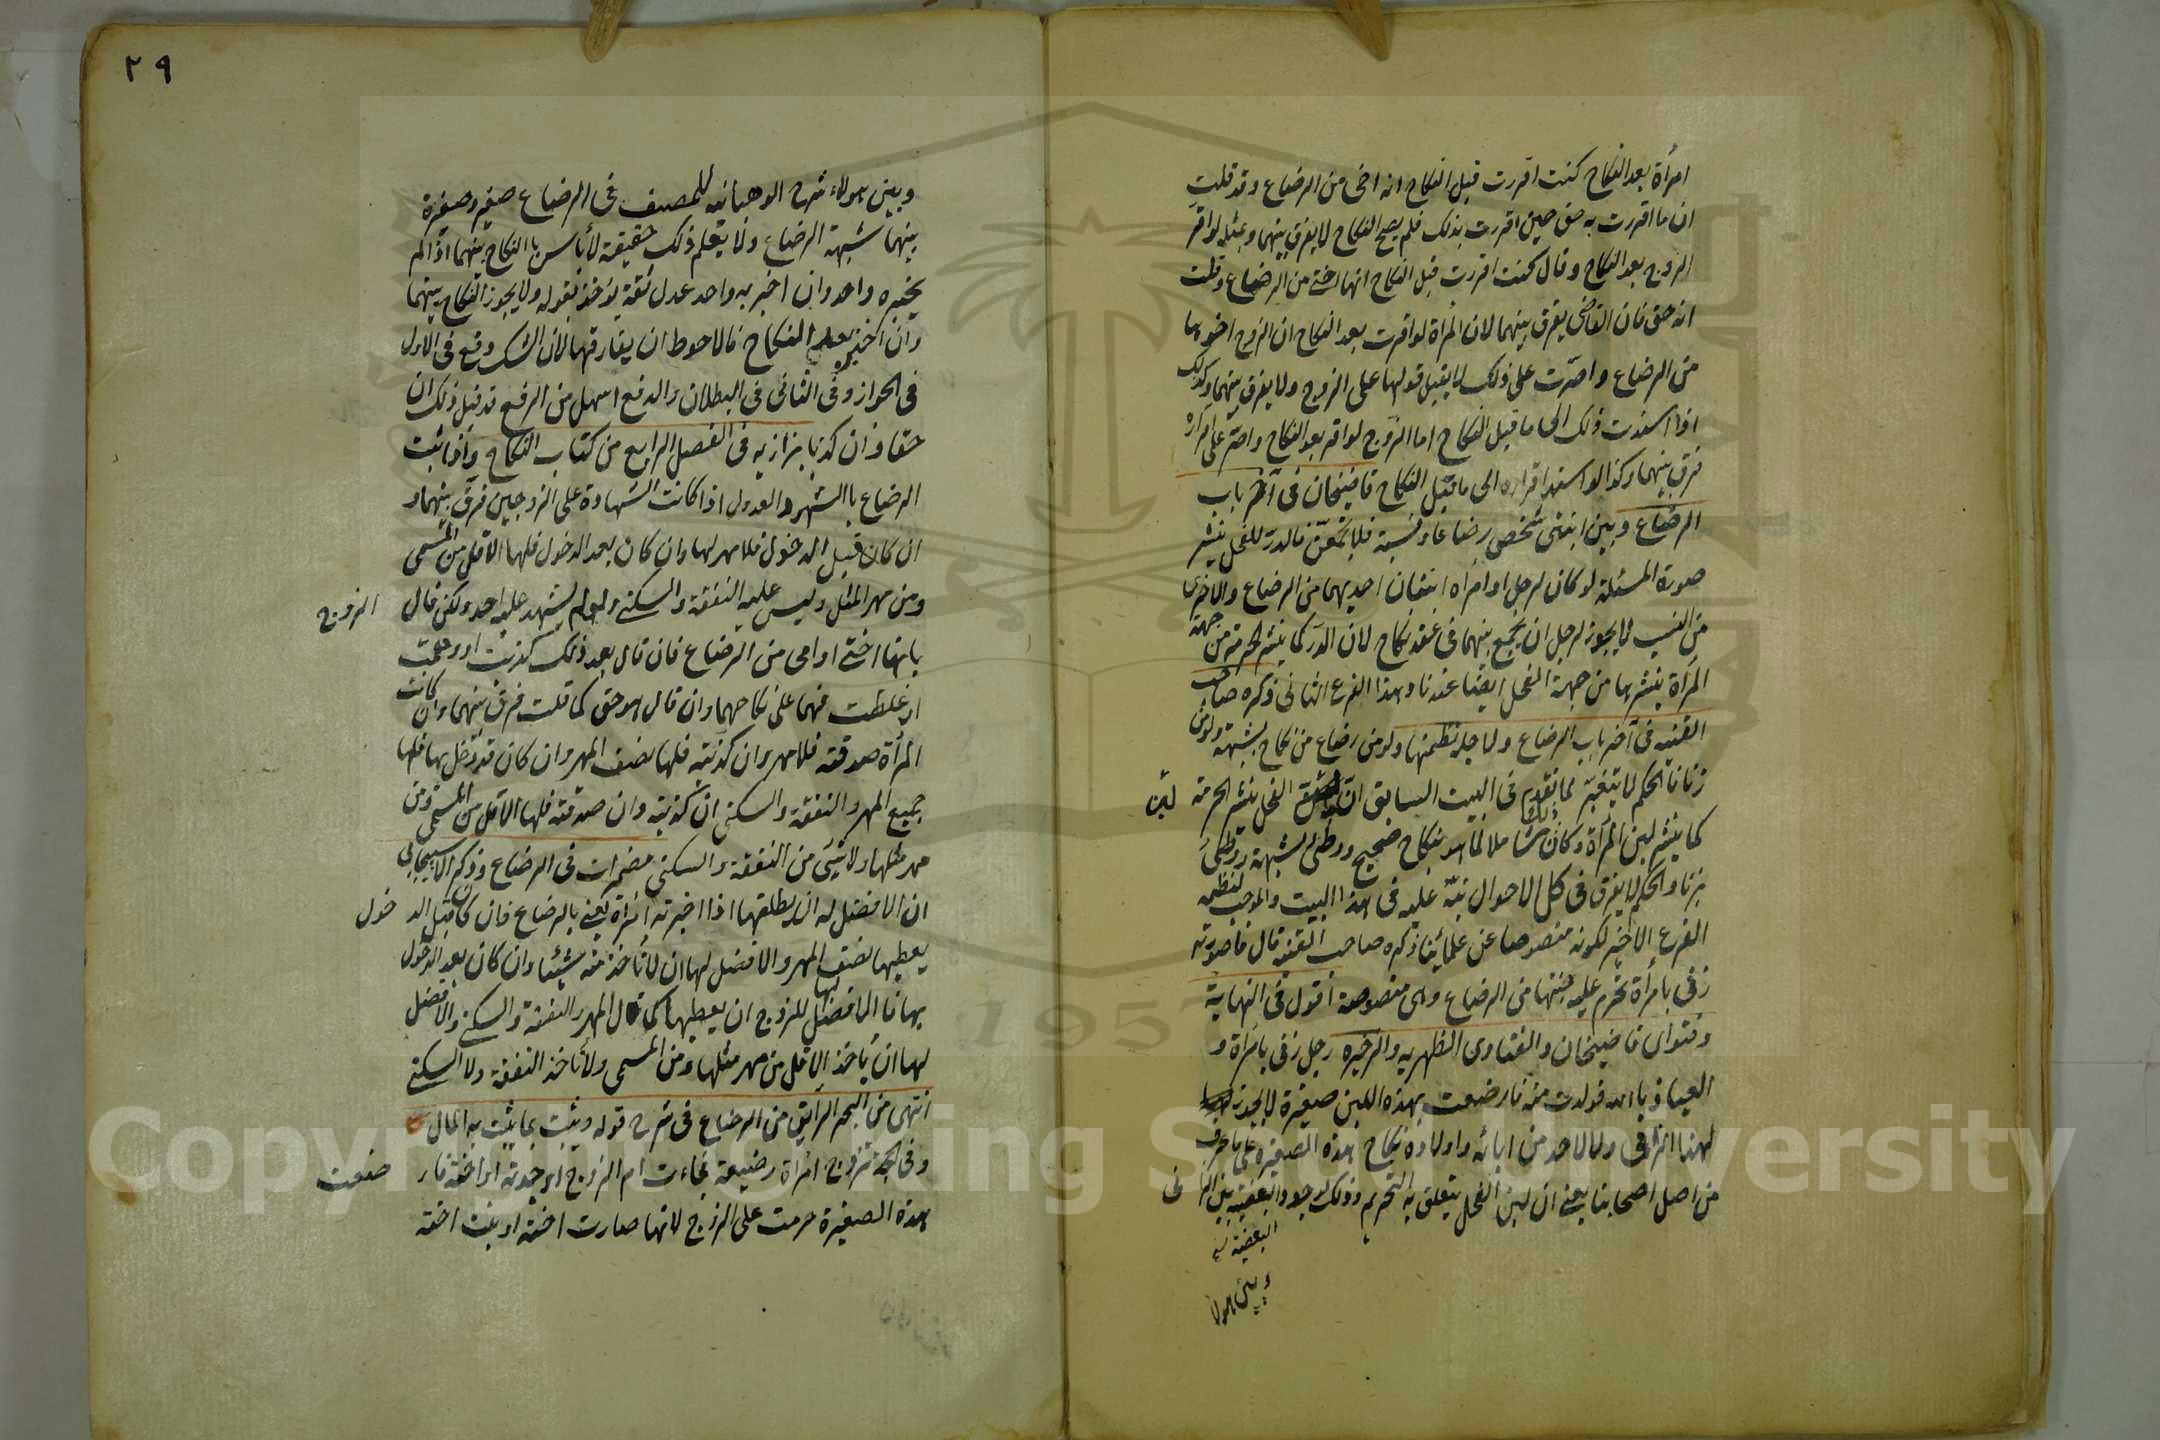 امرأة بعد النكاح كنت اقررت قبل النكاح انه اخى من الرضاع وقد قلت
ان ما اقررت به حق حين اقررت بذلك فلم يصح النكاح لا يفرق بينهما وبمثله لو اقر
الزوج بعد النكاح وقال كنت اقررت قبل النكاح انها اختى من الرضاع وقلت
انه حق فان القاضى يفرق بينهما لان المرأة لو اقرت بعد النكاح ان الزوج اخوها
من الرضاع واصرت على ذلك لا يقبل قولها على الزوج ولا يفرق بينهما وكذلك
اذا اسندت ذلك الى ما قبل النكاح اما الزوج لو اقر بعد النكاح واصر على اقراره
فرق بينهما وكذا لو اسند اقراره الى ما قبل النكاح قاضيخان فى آخر باب
الرضاع وبين ابنتى شخص رضاعا ونسبة فلا تجمعن فالدر للفحل ينشر
صورة المسئلة لو كان لرجل او امرأه ابنتان احديهما من الرضاع والاخرى
من النسب لا يجوز لرجل ان يجمع بينهما فى عقد نكاح لان الدر كما ينشر الحرمة من جهة
المرأة ينشرها من جهة الفحل ايضا عندنا وهذا الفرع الثانى ذكره صاحب
القنيه فى آخر باب الرضاع ولاجله نظمتها ولو من رضاع من نكاح بشبهة ولو من
زنا فالحكم لا يتغير لما تقدم فى البيت السابق ان الفحل ينشر الحرمة
لبن
كما ينشر لبن المرأة وكان ذلك شاملا لما هو بنكاح صحيح ووطئ بشبهة ووطئ
بزنا والحكم لا يفرق فى كل الاحوال نبه عليه فى هذا البيت والموجب لنظمه
الفرع الاخير لكونه منصوصا عن علمائنا ذكره صاحب القنيه قال فاصورته
زنى بامرأة تحرم عليه بنتها من الرضاع وهى منصوصة اقول فى النهاية
وفتواى قاضيخان والفتاوى الظهريه والذخيره رجل زنى بامرأة و
العياذ بالله فولدت منه فارضعت بهذه اللبن صغيرة لا يجوز
لهذا الزانى ولا لاحد من ابائه واولاده نكاح هذه الصغيرة على ما عرف
من اصل اصحابنا يعنى ان لبن الفحل يتعلق به التحريم وذلك لوجود البعضية بين الزا
نى
البعضية
وبين هولا
٢٩
وبين هولاء شرح الوهبانيه للمصنف فى الرضاع صغير وصغيرة
بينهما شبهة الرضاع ولا يعلم ذلك حقيقة لا بأس باالنكاح بينهما اذا لم
يخبره واحد وان اخبر به واحد عدل ثقة يؤخذ بقوله ولا يجوز النكاح بينهما
وان اخبره بعد النكاح فالاحوط ان يفارقها لان الشك وقع فى الاول
فى الجواز وفى الثانى فى البطلان والدفع اسهل من الرفع قد قيل ذلك ان
حقا وان كذبا بزازيه فى الفصل الرابع من كتاب النكاح واذا ثبت
الرضاع باالشهود العدول اذا كانت الشهادة على الزوجين فرق بينهما و
ان كان قبل الدخول فلا مهر لها وان كان بعد الدخول فلها الاقل من المسمى
ومن مهر المثل وليس عليه النفقة والسكنى ولو لم يشهد عليه احد ولكن قال
الزوج
بانها اختى او امى من الرضاع فان قال بعد ذلك كذبت او وهمت
او غلطت فهما على نكاحهما وان قال هو حق كما قلت فرق بينهما وان كانت
المرأة صدقته فلا مهر وان كذبته فلها نصف المهر وان كان قد دخل بها فلها
جميع المهر والنفقة والسكنى ان كذبته وان صدقته فلها الاقل من المسمى ومن
مهر مثلها ولا شئ من النفقة والسكنى مضمرات فى الرضاع وذكر الاسبيجابى
ان الافضل له ان يطلقها اذا اخبرته امرأة يعنى بالرضاع فان كان قبل الد
خول
يعطيها نصف المهر والافضل لها ان لا تأخذ منه شيئا وان كان بعد الدخول
بها فالافضل للزوج ان يعطيها كمال المهر والنفقة والسكنى والافضل
لها ان يأخذ الاقل من مهر مثلها ومن المسمى ولا تأخذ النفقة ولا السكنى
انتهى من البحر الرايق من الرضاع فى شرح قوله ويثبت بما يثبت به المال
وفى الحجة تزوج امرأة رضيعة فجاءت ام الزوج او جدته او اخته فار
ضعت
هذه الصغيرة حرمت على الزوج لانها صارت اخته او بنت اخته